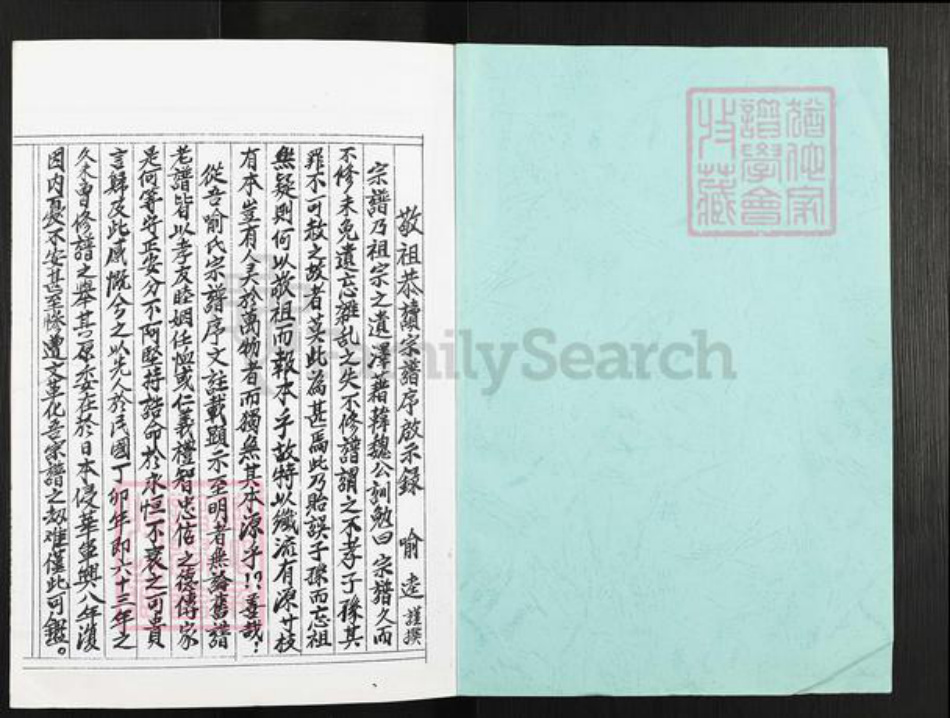 敬祖恭讀宗譜序啟示録　喻逵 謹撰
宗譜乃祖宗之遺澤藉韓魏公訓勉曰宗譜久而
不修未免遺忘雜乱之失不修譜謂之不孝子孫其
罪不可赦之故者莫此為甚焉此乃貽誤子孫而忘祖
無疑則何以敬祖而報本乎故特以纖流有源寸枝
有本豈有人灵於萬物者而獨無其本源乎!?善哉!
從吾喻氏宗譜序文註載顕示至明者無論舊譜
老譜皆以孝友睦姻任恤或仁義禮智忠信之德傳家
是何等好正安分不阿堅持誥命於永恒不衰之可貴
言歸及此感慨今之以先人於民國丁卯年即六十三年之
久未曾修譜之舉其原委在於日本侵華軍興八年復
因内憂不安甚至慘遭文革化吾宗譜之劫难僅此可鑑。
猶他家
譜學會
收藏
FamilySearch